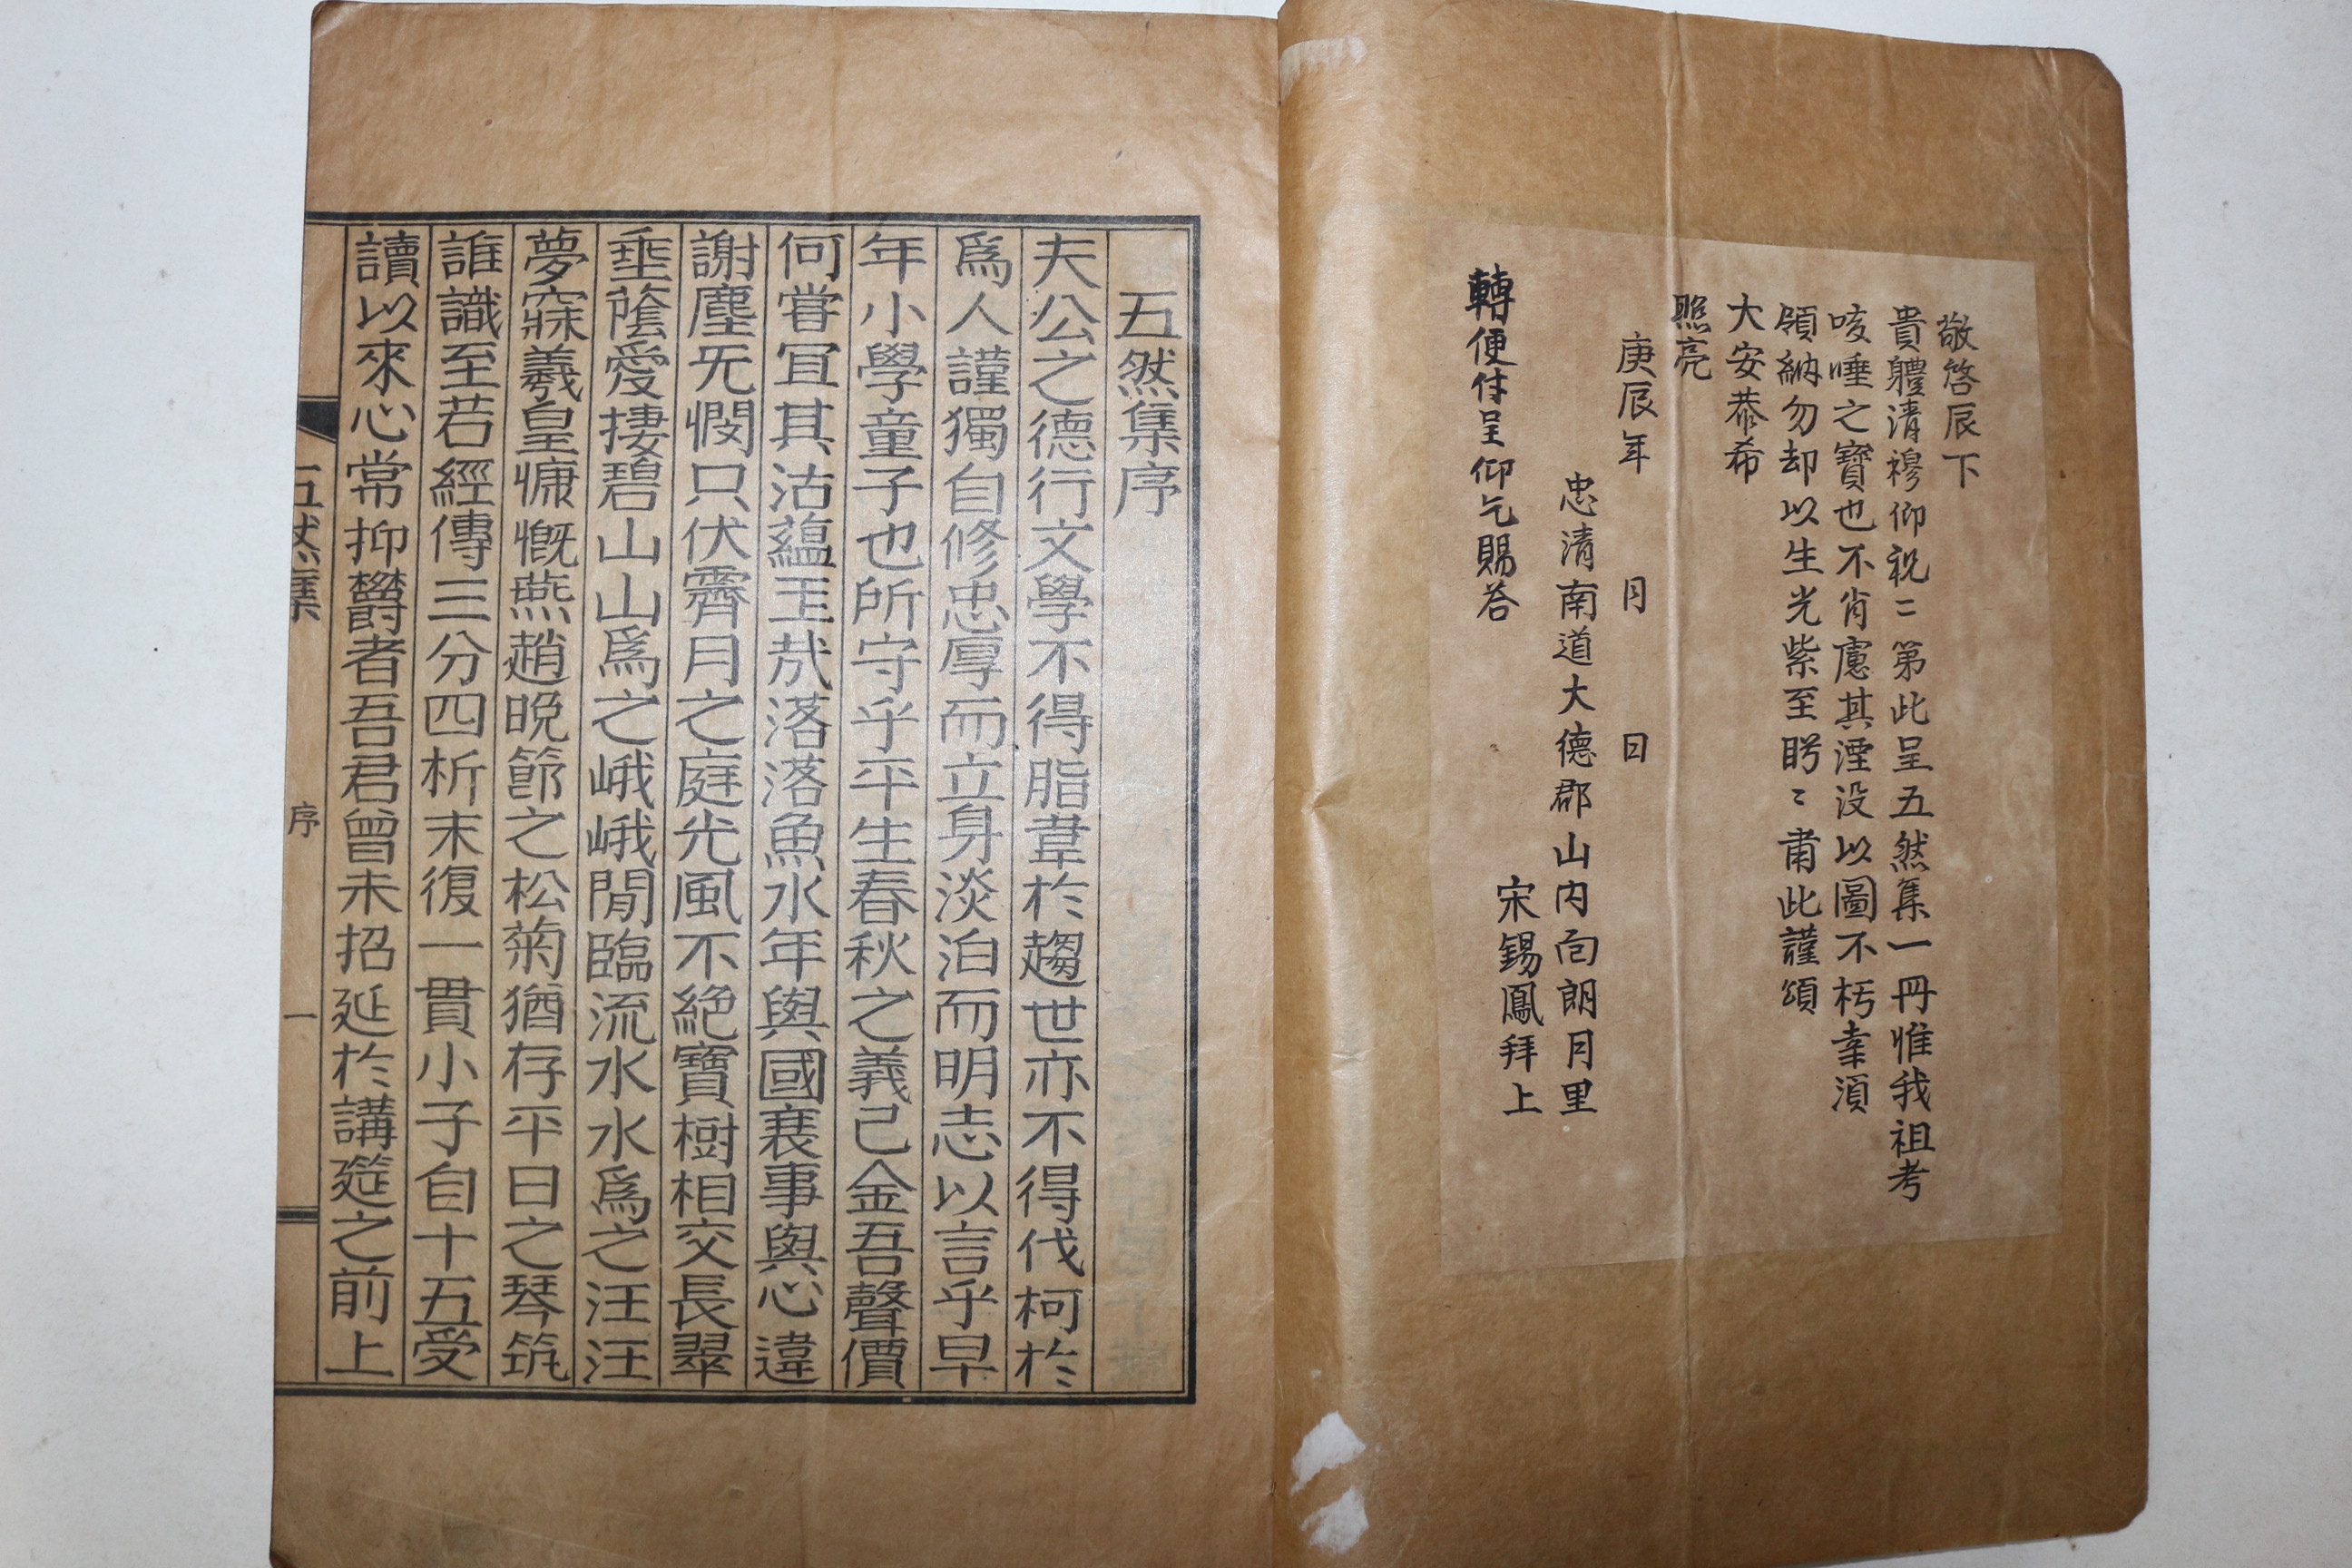 敬啓辰下
貴體清穆仰祝〻第此呈五然集一冊惟我祖考
咳唾之寶也不肯慮其湮沒以圖不朽幸須
領納勿却以生光紫至盼〻肅此謹頌
大安恭希
照亮
庚辰年 月 日
忠清南道大德郡山內面朗月里
宋錫鳳拜上
轉便付呈仰乞賜答
五然集序
夫公之德行文學不得脂韋於趨世亦不得伐柯於
爲人謹獨自修忠厚而立身淡泊而明志以言乎早
年小學童子也所守乎平生春秋之義已金吾聲價
何嘗冝其沽蘊玉㢤落落魚水年與國衰事與心違
謝塵旡憫只伏霽月之庭光風不絕寶樹相交長翠
垂蔭愛捿碧山山爲之峨峨閒臨流水水爲之汪汪
夢寐羲皇慷慨燕趙晩節之松菊猶存平日之琴筑
誰識至若經傳三分四析末復一貫小子自十五受
讀以來心常抑欝者吾君曾未招延於講筵之前上
五然集 序 一